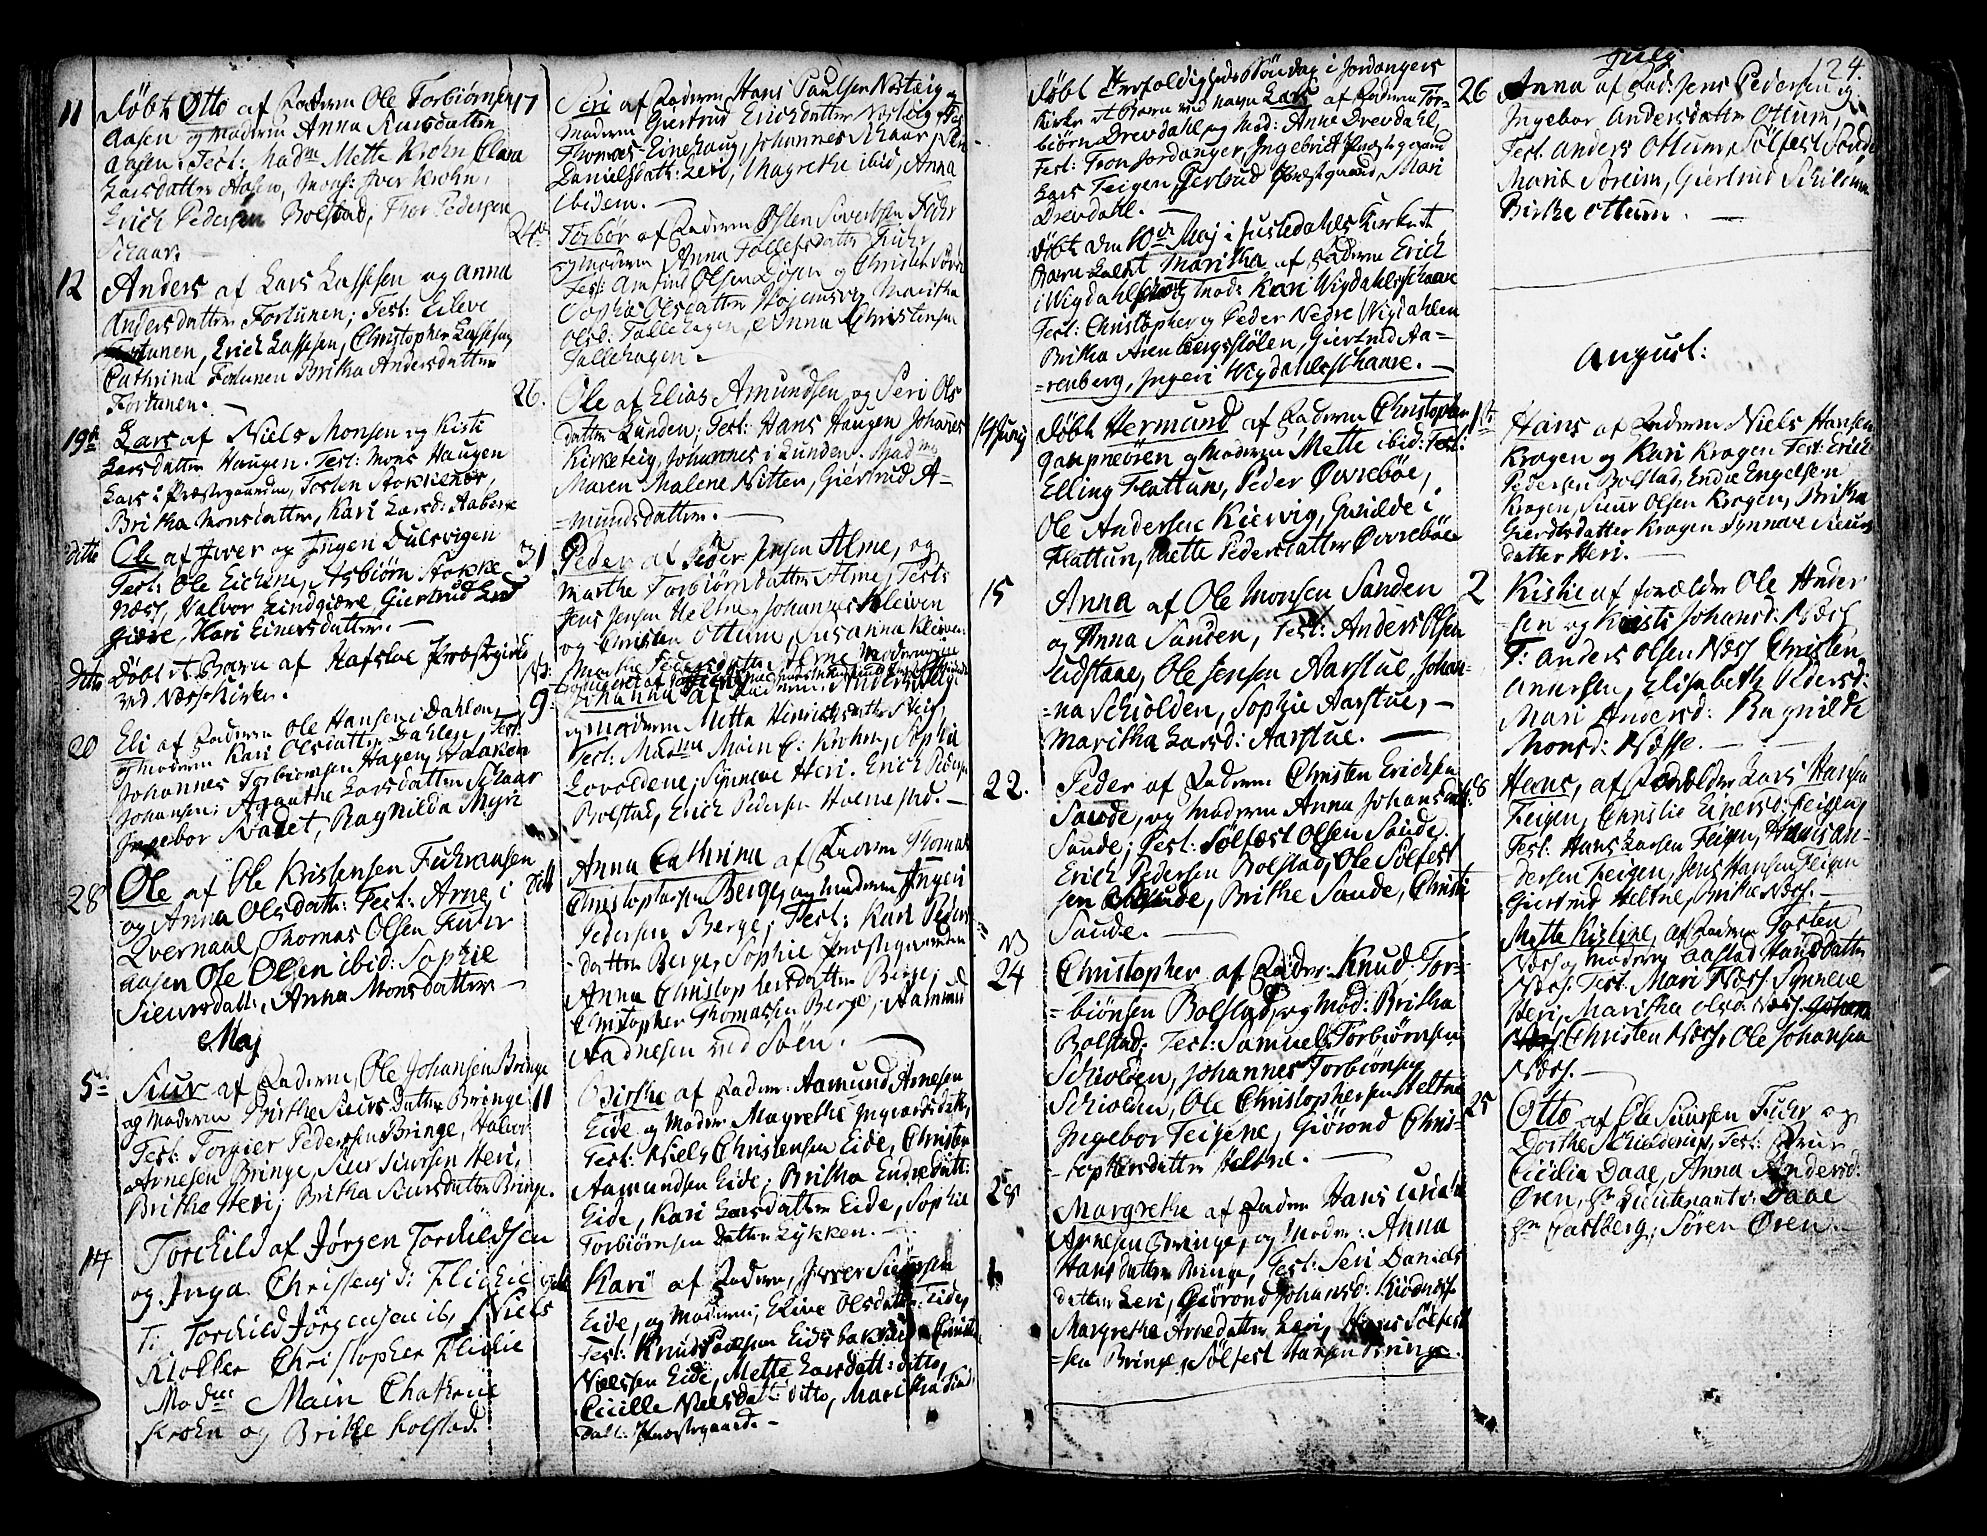 11 Døbt Otto af Faderen Ole Torbiørnsen
Aasen og Moderen Anna
Aasen. Test: Mad:me Mette Krohn Clara
Larsdatter Aasen, Mons: Iver Krohn,
Erich Pedersen Bolstad, Thor Pedersen
Skaar.
12 Anders af Lars Lassesen og Anna
Andersdatter Fortunen; Test: Eileve
Fortunen, Erich Lassesen, Christopher Lassesen
Cathrina Fortunen Britha Andersdatter
Fortunen.
19de Lars af Niels Monsen og Kisti
Larsdatter Haugen. Test: Mons Haugen
Lars i Præstegaarden, Tosten
Britha Monsdatter, Kari Larsd: Aaberge
ditto Ole af Iver og Ingen Dulsvigen
Test: Ole Eickene, Asbiørn
Næss, Halvor Lindgiære, Giertrud Lind
giære, Kari Einersdatter.
ditto Døbt et Barn af Hafsloe Præstegield
ved Næss Kirke.
20 Eli af Faderen Ole Hansen i Dahlen,
og Moderen Kari Olsdatter Dahlen, Test:
Johannes Torbiørnsen Hagen, Haaken
Johansen; Aganthe Larsdatter Skaar
Ingebor, Ragnilda Myri
28 Ole af Ole Kristensen Fuhraasen
og Anna Olsdatt: Test: Arne i
Qvernaae, Thomas Olsen Fuhr
aasen Ole Olsen ibid: Sophie
Sieursdatt:, Anna Monsdatter
Maj
5te Siur af Faderen, Ole Johansen Bringe
og Moderen Birthe Siurs Datter Bringe
Test: Torgier Pedersen Bringe, Halvor
Arnesen Bringe, Siur Siursen Heri,
Britha Heri, Britha Siursdatter Bringe.
14 Torchild af Jørgen Torchildsen
og Inga Christensd: Flickie
T: Torchild Jørgensen ib, Niels
Klokker Christopher Flickie
Mad:me Main Chatrine
Krohn og Brithe Bolstad.
17 Siri af Faderen Hans Paulsen
Moderen Giertrud Erichsdatter
Thomas Einehaug, Johannes Skaar, Siri
Danielsdatt: Leri, Magrethe ibid, Anna
ibidem.
24de Torbør af Faderen Østen Sivertsen Fuhr
og Moderen Anna Tollefsdatter Fuhr
Test: Olsen og Christen
Sophia Olsdatter Maritha
Olsd: Tallehagen, Anna Christensen
Tallehagen.
26. Ole af Elias Amundsen og Seri Ols
datter Lunden; Test: Hans Haugen Johannes
Kirketeig, Johannes i Lunden. Mad:me
Maren Malene Nitter, Giertrud A-
=mundsdatter.
31 Peder af Peder Jensen Alme, og
Marthe Torbiørnsdatter Alme, Test:
Jens Jensen Heltne, Johannes Kleiven
og Christen Ottum, Susanna Kleiven
9. Johanna af Faderen Anders
og Moderen Metta Hinrichsdatter
Test: Mad:me Main C: Krohn, Sophia
Lovoldene, Synneve Heri. Erich Peders:
Bolstad, Erich Pedersen
ditto Anna Cathrina af Faderen Thomas
Christophersen Berge, og Moderen Ingeri
Pedersen Berge; Test: Kari Peders
datter Berge, Sophie Præstegaarden
Anna Christophersdatter Berge,
Christopher Thomassen Berge, Aamund
Nadnesen ved Søen.
11 Birthe af Fader: Aamund Arnesen
Eide og Moder: Magrethe Ingvarsdatt:
Test: Niels Christensen Eide, Christen
Aamundsen Eide, Britha Endredatt:
Eide, Kari Larsdatter Eide, Sophia
Torbiørnsen datter Lykken.
Kari af Faderen, Iver Siursen
Eide, og Moderen; Eline Olsdatter Eide,
Test: Knud Eidsbakken, Christen
Nielssen Eide, Mette Larsdatt: ditto,
Cicille Nielsdatt: ditto, Maritha
Datt: Præstegaard.
Døbt Trefoldigheds Søndag i Jordangers
Kirke et Barn ved Navn Lars af Faderen Tor-
biørn Drevdahl og Mod: Anne Drevdahl,
Test: Tron Jordanger, Ingebrigt Præstegaard
Lars Teigen Giertrud Præstegaard, Mari
Drevdahl.
Døbt den 10de Maj i Justedahls Kirke et
Barn kaldt Maritha af Faderen Erich
i Wigdahl Mod: Kari Wigdahlsschaare
Test: Christopher og Peder Nedre Wigdahlen
Britha Arenbergsstølen, Giertrud Aa-
=renberg, Ingeri Wigdahlsschaare.
14 Junij Døbt Hermund af Faderen Christopher
Gaupneøren og Moderen Mette ibid: Test:
Elling Flattun, Peder Øvrebøe,
Ole Andersen Kiervig, Gunilde i
Flattun, Mette Pedersdatter Øvrebøen
15 Anna af Ole Monsen Sanden
og Anna Sanden, Test: Anders Olsen
Udstaae, Ole Jensen Aarstue, Johan-
=na Schiolden, Sophie Aarstue,
Maritha Larsd: Aarstue.
22. Peder af Faderen Christen Ericksen
Sande, og Moderen Anna Johansdatt:
Sande; Test: Sølfest Olsen Sande.
Erich Pedersen Bolstad, Ole Sølfest
sen Sande, Brithe Sande, Christi
Sande.
24 Christopher af Fader: Knud Tor-
=biønsen Bolstad, og Mod: Britha
Bolstad. Test: Samuel Torbiørnsen
Schiolden, Johannes Torbiønsen
Schiolden, Ole Christophersen Heltne
Ingebor Teigene, Giørond Chris-
=tophersdatter Heltne.
28 Margrethe af Fader Hans
Arnesen Bringe, og Moder: Anna
Hansdatter Bringe, Test: Seri Daniels
datter Leri, Giørond Johansd:
Margrethe Arnedatter Leri, Hans Sølfest
=sen Bringe, Sølfest Hansen Bringe.
July
124.
26 Anna af Fad: Jens Pedersen og
Ingebor Andersdatter Ottum,
Test: Anders Ottum, Sølfest Sande
Marit Soreim, Giertrud
Birthe Ottum.
August:
1ste Hans af Faderen Niels Hansen
Kragen og Kari Kragen Test: Erich
Pedersen Bolstad, Endre Engelsen
Kragen, Siur Olsen Kragen, Britha
Gierdtsdatter Kragen Synneve Sieurs
datter Heri.
2 Kirstie af forældre Ole Ander
=sen og Kristi Johansd: Næss
T: Anders Olsen Næss Christen
Andersen, Elisabeth Pedersd:
Mari Andersd: Ragnilde
Monsd: Næsse.
8 Hans, af Forældre Lars Hansen
Teigen, Christie Einersd: Teigen,
Test: Hans Larsen Teigen, Hans An-
dersen Teigen, Jens Hansen Teigen
Giertrud Heltne, Brithe Næss.
Mette Kistine, af Faderen Tosten
Næss og Moderen Aastad Hansdatter
Næss. Test: Mari Næss. Synneve
Heri, Maritha Olsd: Næss.
Christen Næss, Ole Johansen
Næss.
25 Otto af Ole Siursen Fuhr og
Dorthe Schielderup, Test: Frue
Cicilia Daae, Anna Andersd:
Øren, Hr Lieutenant: Daae
Hr Carlberg, Søren Øren.